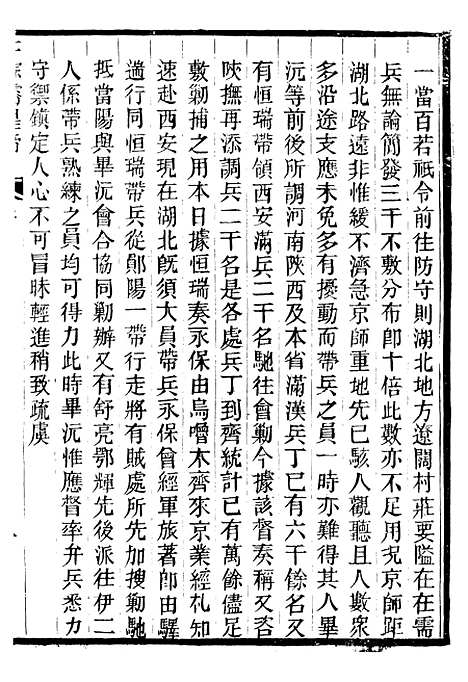 一當百若祇令前往防守則湖北地方遼闊村莊要隘在在需
兵無論簡發三千不敷分布卽十倍此數亦不足用況京師距
湖北路遠非惟緩不濟急京師重地先已駭人觀聽且人數衆
多沿途支應未免多有擾動而帶兵之員一時亦難得其人畢
沅等前後所調河南陝西及本省滿漢兵丁已有六千餘名又
有恒瑞帶領西安滿兵二千名馳往會勦今據該督奏稱又咨
陝撫再添調兵二千名是各處兵丁到齊統計已有萬餘儘足
敷勦捕之用本日據恒瑞奏永保由烏嚕木齊來京業經札知
速赴西安現在湖北旣須大員帶兵永保曾經軍旅著卽由驛
遄行同恒瑞帶兵從鄖陽一帶行走將有賊處所先加搜勦馳
抵當陽與畢沅會合協同勦辦又有舒亮鄂輝先後派往伊二
人係帶兵熟練之員均可得力此時畢沅惟應督率弁兵悉力
守禦鎮定人心不可冒昧輕進稍致疏虞